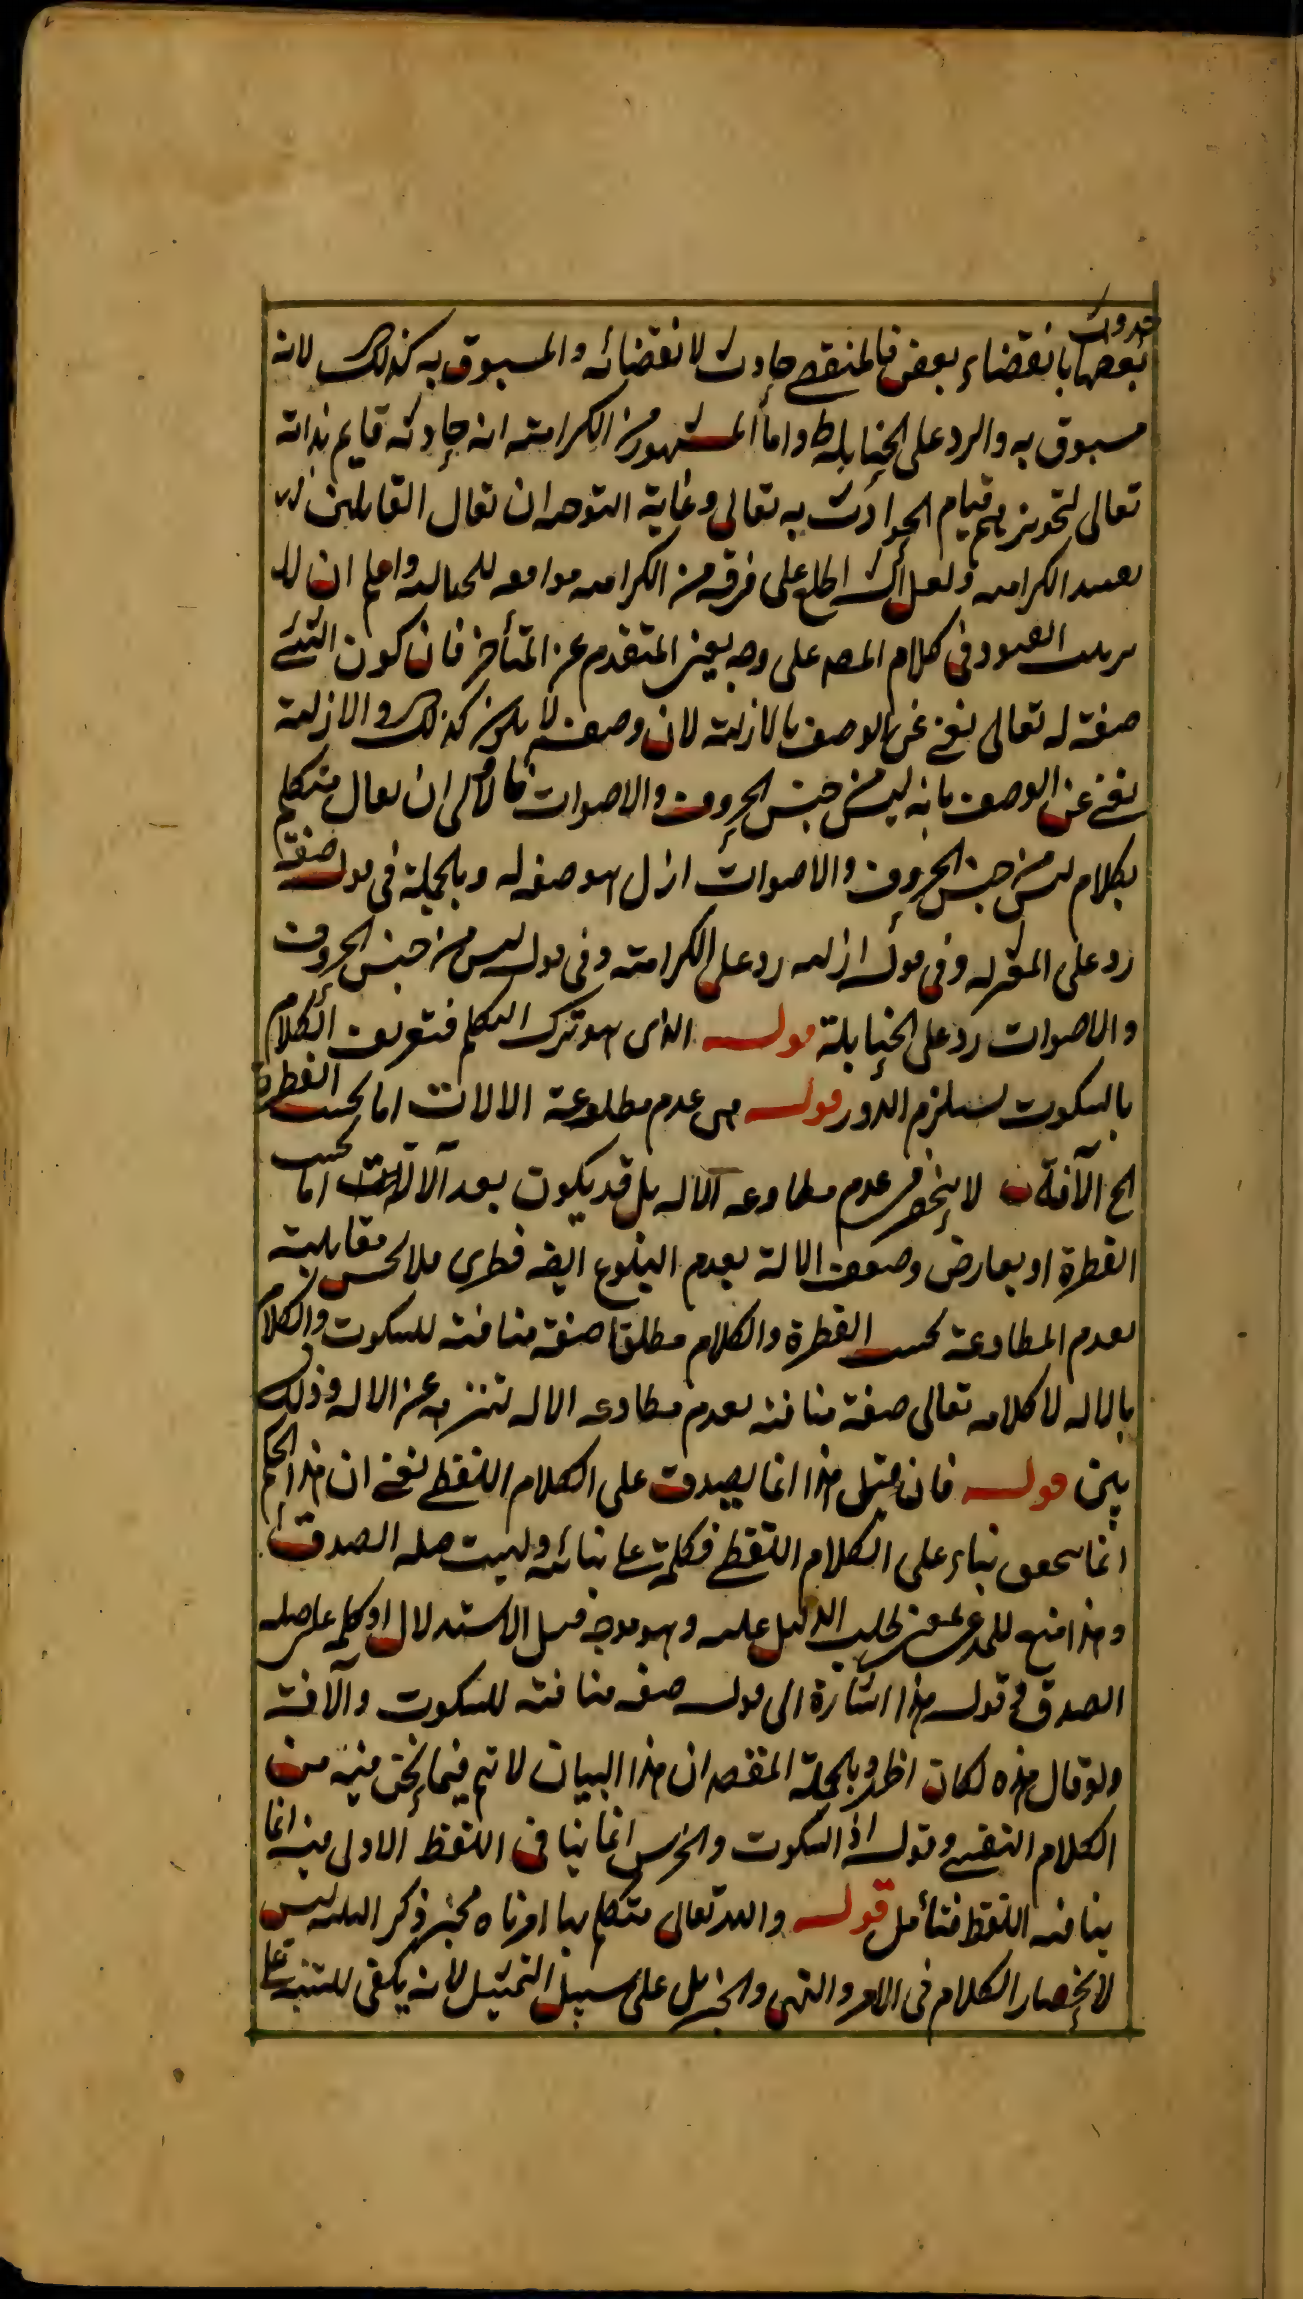 حدوث
بعضها بانقضاء بعض فالمنقضے حادث لانقضائه والمسبوق به كذلك لانه
مسبوق به والرد على الحنابلة ط واما المشهور من الكرامية انه حادث قايم بذاته
تعالى لتجويزهم قيام الحوادث به تعالى وغاية التوجيه ان يقال القايلين
الكرامية ولعل الش اطلع على فرقة من الكرامية موافقة للحنابلة واعلم ان
القيود فى كلام المصه على وجه يغنى المتقدم عن المتأخر فان كون الشئ
صفة له تعالى يغنے عن الوصف بالازلية لان وصفه لا يكون كذلك والازلية
يغنے عن الوصف بانه ليس من جنس الحروف والاصوات فالاولى ان يقال متكلم
بكلام ليس من جنس الحروف والاصوات ازلى هو صفة له وبالجملة فى قوله صفة
رد على المعتزلة وفى قوله ازلية رد على الكرامية وفى قوله ليس من جنس الحروف
والاصوات رد على الحنابلة قوله الذى هو ترك التكلم فتعريف الكلام
بالسكوت يستلزم الدور قوله هى عدم مطاوعة الالات اما بحسب الفطرة
الخ الآفة لا ينحصر فى عدم مطاوعة الالة بل قد يكون بعد الآلات اما بحسب
الفطرة او بعارض وضعف الالة بعدم البلوغ ايضه فطرى فلا يحسن مقابلته
بعدم المطاوعة بحسب الفطرة والكلام مطلقا صفة منافية للسكوت والكلام
بالالة لا كلامه تعالى صفة منافية بعدم مطاوعة الالة لتنزهه عن الالة وذلك
بين قوله فان قيل هذا انما يصدق على الكلام اللفظے يعنے ان هذا الحكم
انما يتحقق بناء على الكلام اللفظے فكلمة على بنائية وليست صلة الصدق
وهذا منع للمدعى بمعنى طلب الدليل عليه وهو موجه قبل الاستدلال او كلمة على صلة
الصدق فى قوله هذا اشارة الى قوله صفة منافية للسكوت والآفت
ولو قال هذه لكان اظهر وبالجملة المقصد ان هذا البيان لا تم فيما نحن فيه من
الكلام النفسے وقوله اذ السكوت والخرس انما ينافى اللفظ الاولى منه انما
ينافيه اللفظ فتأمل قوله والله تعالى متكلم بها امر ناه مخبر ذكر الثلثة ليس
لانحصار الكلام فى الامر والنهى والخبر بل على سبيل التمثيل لانه يكفى للتنبيه على